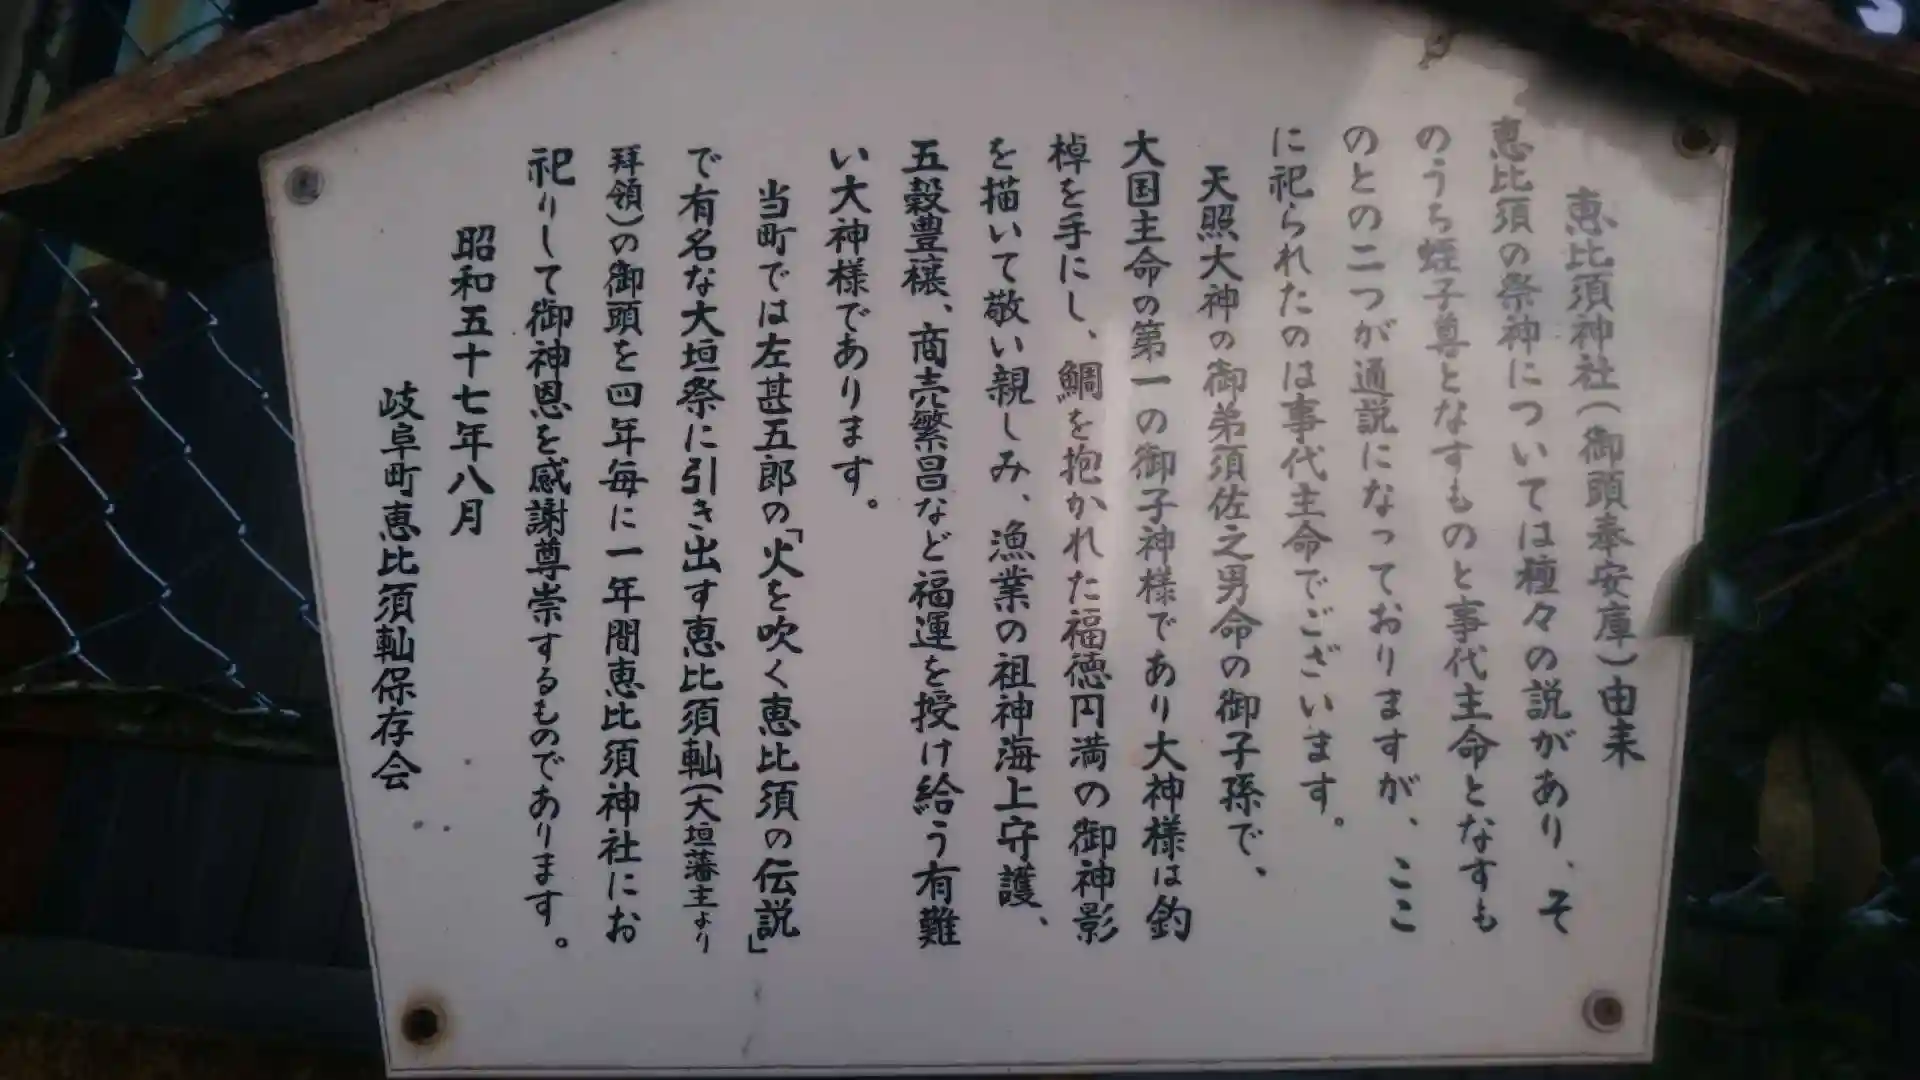 恵比須神社(御頭奉安庫)由来
恵比須の祭神については種々の説があり、そ
のうち蛭子尊となすものと事代主命となすも
のとの二つが通説になっておりますが、ここ
に祀られたのは事代主命でございます。
天照大神の御弟須佐之男命の御子孫で、
大国主命の第一の御子神様であり大神様は釣
棹を手にし、鯛を抱かれた福徳円満の御神影
を描いて敬い親しみ、漁業の祖神海上守護、
五穀豊穣、商売繁昌など福運を授け給う有難
い大神様であります。
当町では左甚五郎の「火を吹く恵比須の伝説」
で有名な大垣祭に引き出す恵比須䡄(大垣藩主より
拜領)の御頭を四年毎に一年間恵比須神社にお
祀りして御神恩を感謝尊崇するものであります。
昭和五十七年八月
岐阜町恵比須䡄保存会